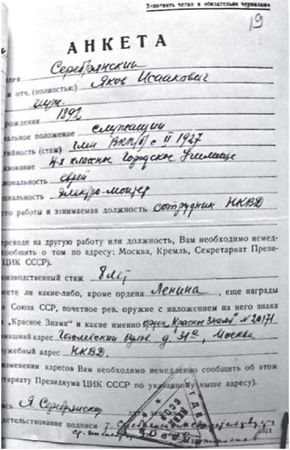 Заполнять четко и обязательно чернилами
19
АНКЕТА
Серебрянский
отч. (полностью) Яков Исаакович
муж.
рождения 1892
альное положение служащий
тийность (стаж) член ВКП(б) с 1927
ование 4х классное Городское Училище
иональность еврей
циальность Электро-монтер
сто работы и занимаемая должность сотрудник НКВД
переходе на другую работу или должность, Вам необходимо немед-
сообщить о том по адресу: Москва, Кремль, Секретариат Прези-
ЦИК СССР).
оизводственный стаж 8 лет
ете ли какие-либо, кроме ордена Ленина, еще награды
Союза ССР, почетное рев. оружие с наложением на него знака
„Красное Знамя" и какие именно орден „Красное Знамя" № 20171
машний адрес д. Москва
ужебный адрес НКВД
изменения адресов Вам необходимо немедленно сообщить об этом
етариату Президиума ЦИК СССР по указанному выше адресу).
ись Я Серебрянский
детельствование подписи